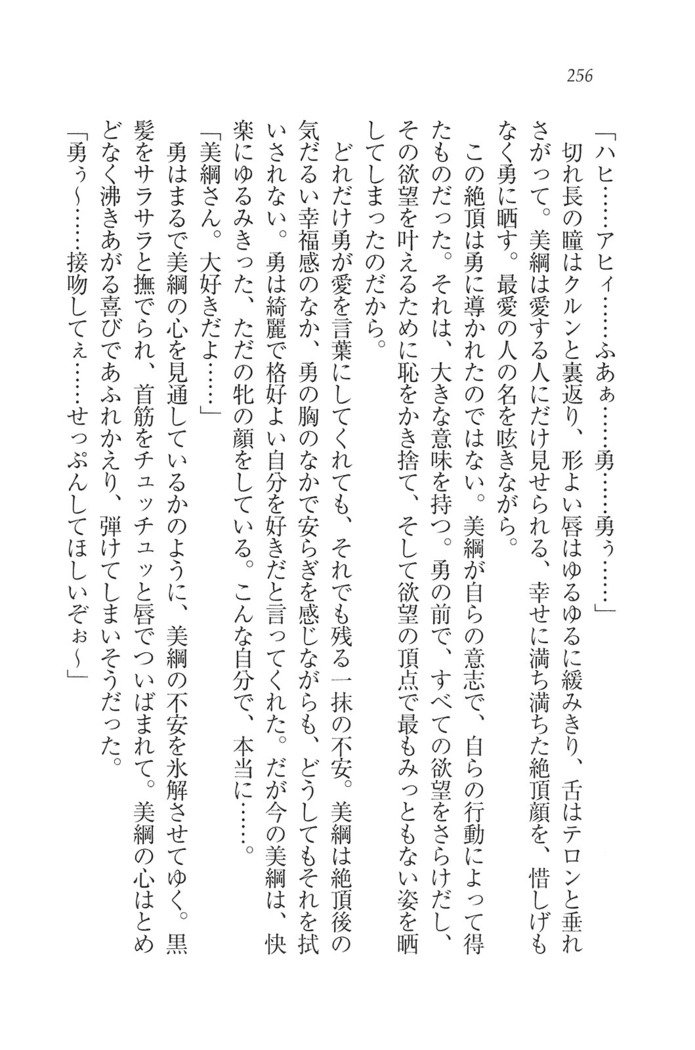 256
「ハヒ……アヒィ……ふあぁ……勇……勇ぅ……」
切れ長の瞳はクルンと裏返り、形よい唇はゆるゆるに緩みきり、舌はテロンと垂れ
さがって。美綱は愛する人にだけ見せられる、幸せに満ち満ちた絶頂顔を、惜しげも
なく勇に晒す。最愛の人の名を呟きながら。
この絶頂は勇に導かれたのではない。美綱が自らの意志で、自らの行動によって得
たものだった。それは、大きな意味を持つ。勇の前で、すべての欲望をさらけだし、
その欲望を叶えるために恥をかき捨て、そして欲望の頂点で最もみっともない姿を晒
してしまったのだから。
どれだけ勇が愛を言葉にしてくれても、それでも残る一抹の不安。美綱は絶頂後の
気だるい幸福感のなか、勇の胸のなかで安らぎを感じながらも、どうしてもそれを拭
いされない。勇は綺麗で格好よい自分を好きだと言ってくれた。だが今の美綱は、快
楽にゆるみきった、ただの牝の顔をしている。こんな自分で、本当に……。
「美綱さん。大好きだよ……」
勇はまるで美綱の心を見通しているかのように、美綱の不安を氷解させてゆく。黒
髪をサラサラと撫でられ、首筋をチュッチュッと唇でついばまれて。美綱の心はとめ
どなく沸きあがる喜びであふれかえり、弾けてしまいそうだった。
「勇ぅ～……接吻してぇ……せっぷんしてほしいぞぉ～」